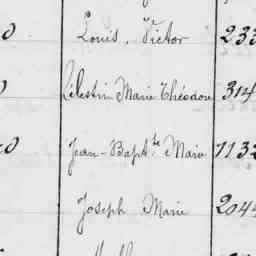 0 Louis, Victor 233
0 Célestin Marie Théodore 314
0 Jean-Bapt.te Marie 1132
Joseph Marie 2044